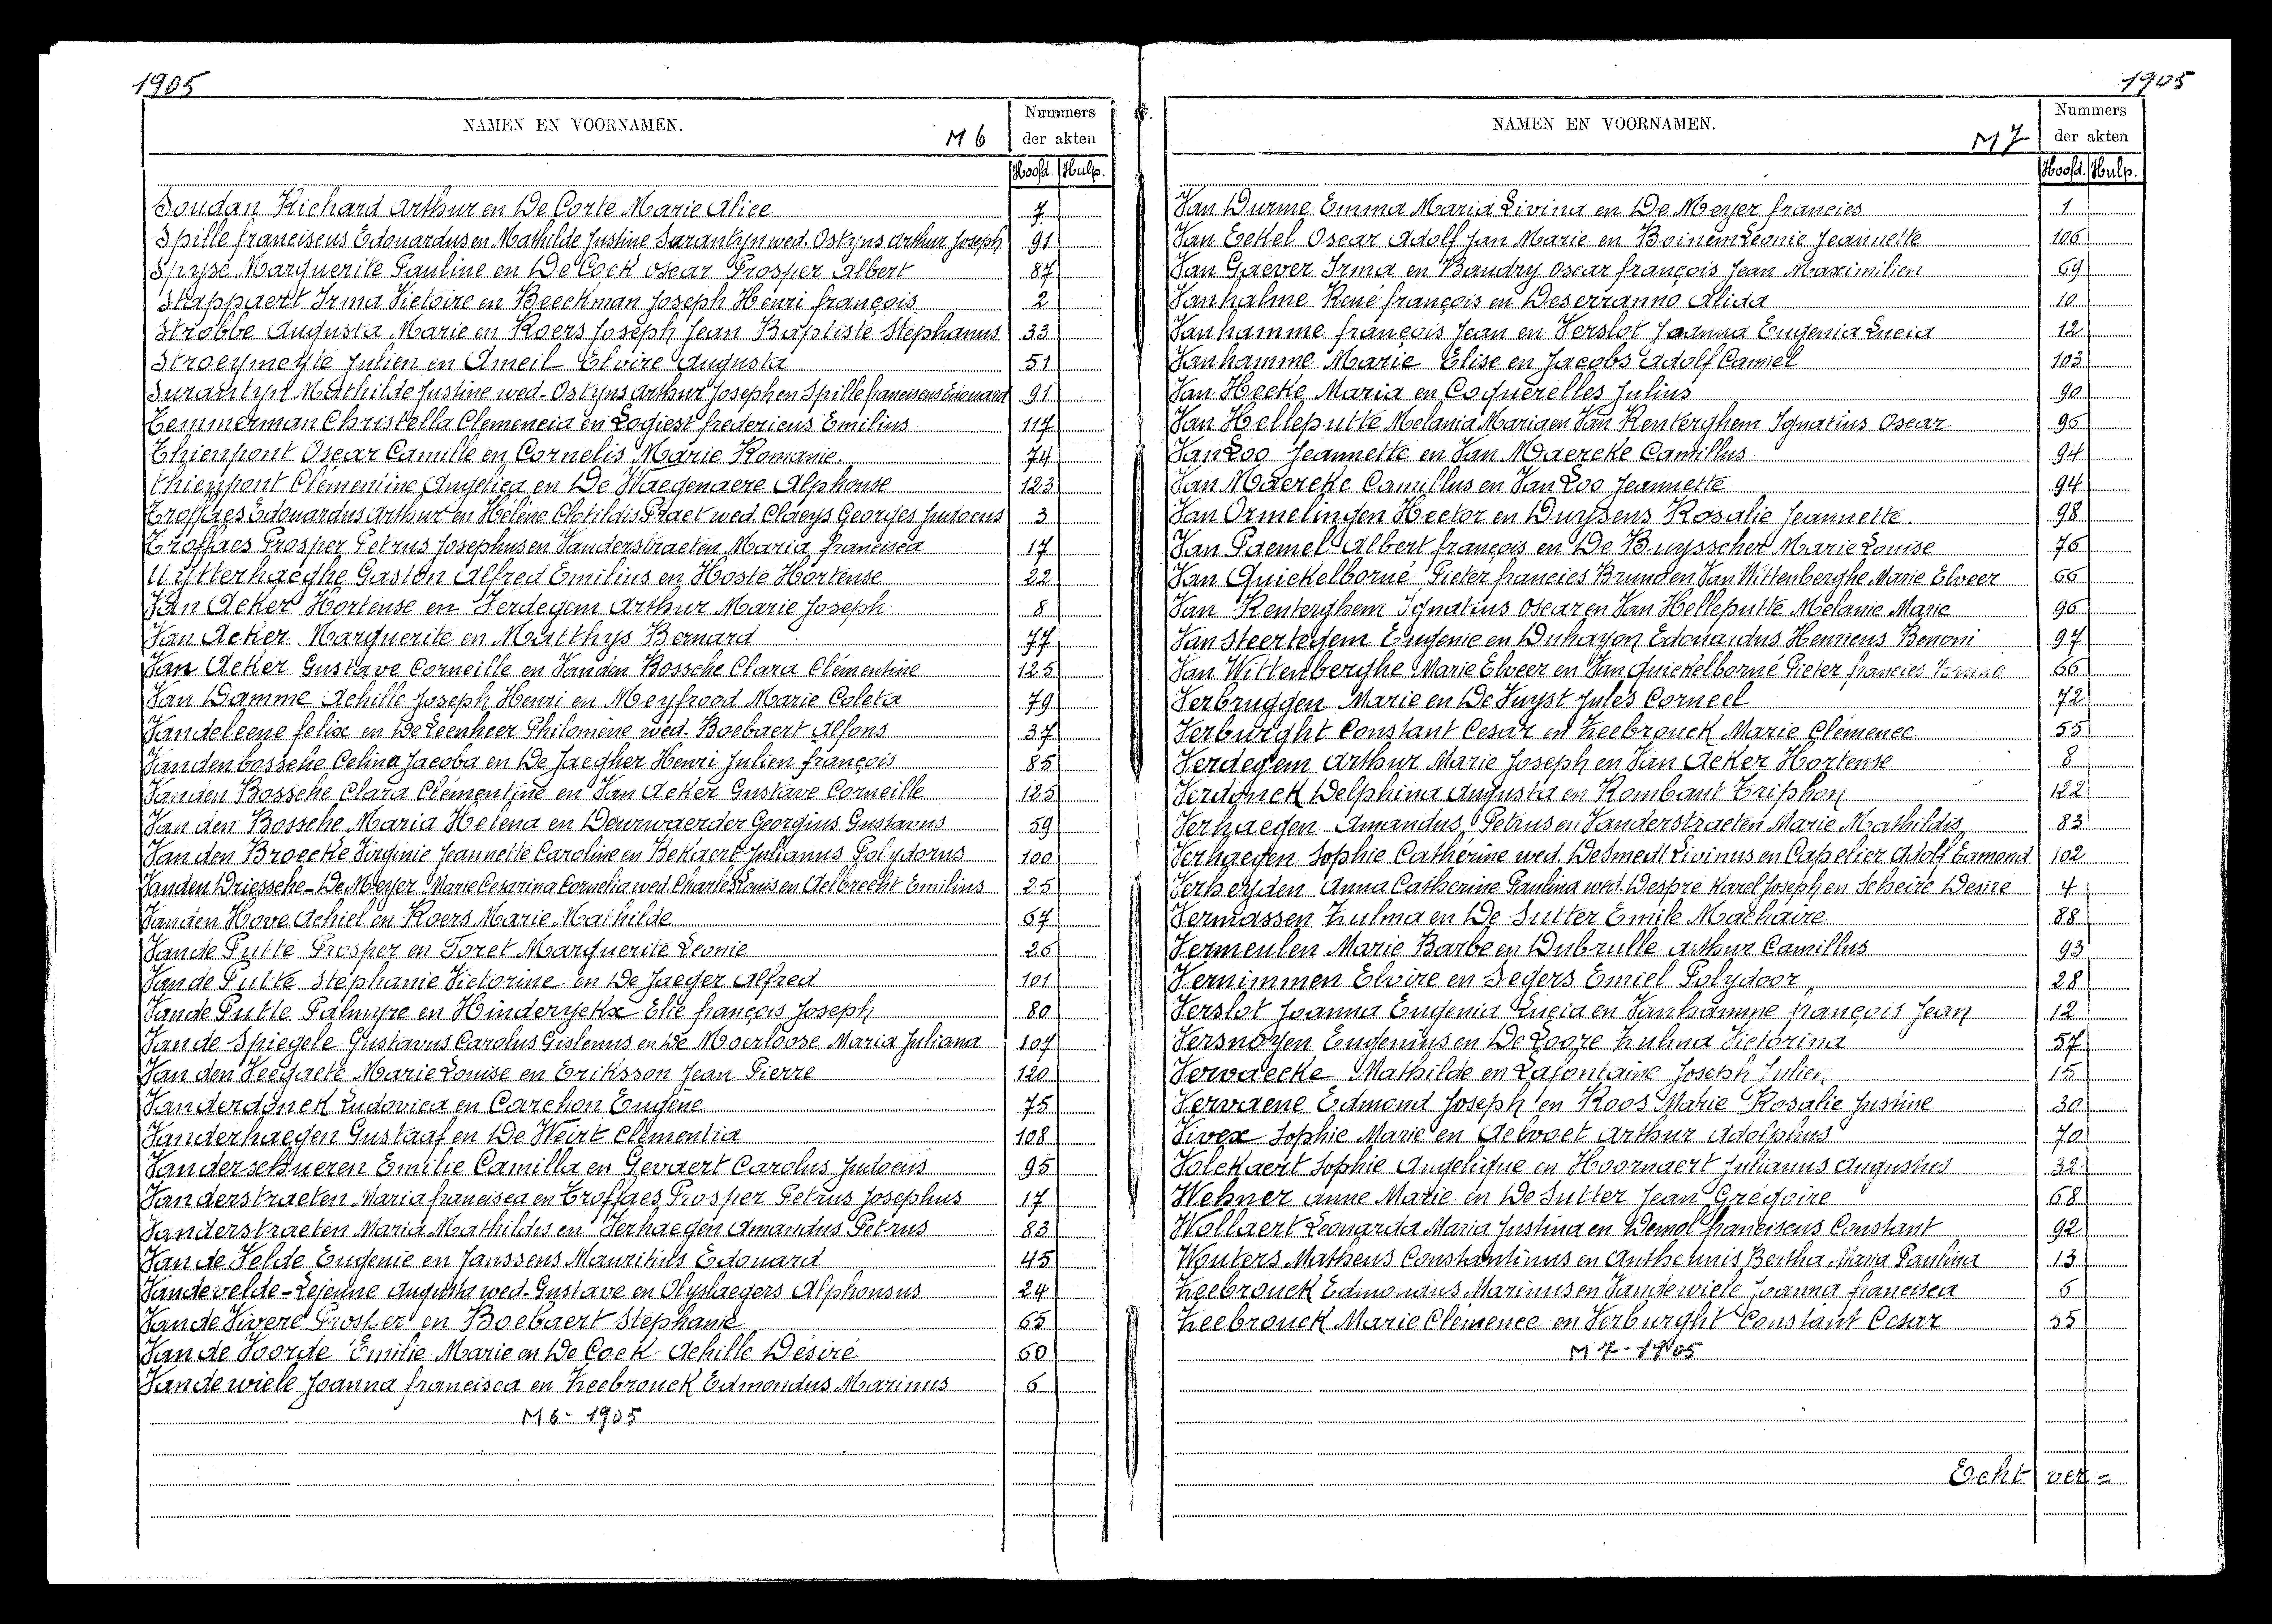 1905
NAMEN EN VOORNAMEN. M 6
Nummers
der akten
Hoofd. Hulp.
Soudan Richard Arthur en De Corte Marie Alice 7
Spille franciscus Edouardus en Mathilde Justine Surantyn wed. Ostyns Arthur Joseph 91
Spryse Marguerite Pauline en De Cock Oscar Prosper Albert 87
Stappaert Irma Victoire en Beeckman Joseph Henri françois 2
Strobbe Augusta Marie en Roers Joseph Jean Baptiste Stephanus 33
Stroeymeyte Julien en Ameil Elvire Augusta 51
Surantyn Mathilde Justine wed. Ostyns Arthur Joseph en Spille franciscus Edouard 91
Temmerman Christella Clemencia en Logiest fredericus Emilius 117
Thienpont Oscar Camille en Cornelis Marie Romanie. 74
Thienpont Clémentine Angelica en De Waegenaere Alphonse 123
Troffaes Edouardus Arthur en Hélène Clotildis Praet wed. Claeys Georges Judocus 3
Troffaes Prosper Petrus Josephus en Vanderstraeten Maria francisca 17
Uytterhaeghe Gaston Alfred Emilius en Hoste Hortense 22
Van Acker Hortense en Verdegem Arthur Marie Joseph 8
Van Acker Marguerite en Matthys Bernard 77
Van Acker Gustave Corneille en Vanden Bossche Clara Clémentine 125
Van Damme Achille Joseph Henri en Meyfrood Marie Coleta 79
Vandeleene felix en De Leenheer Philomène wed. Boebaert Alfons 37
Vandenbossche Celina Jacoba en De Jaegher Henri Julien françois 85
Vanden Bossche Clara Clémentine en Van Acker Gustave Corneille 125
Van den Bossche Maria Helena en Deurwaerder Georgius Gustavus 59
Van den Broecke Virginie Jeannette Caroline en Bekaert Julianus Polydorus 100
Vanden Driessche-De Meyer Marie Cesarina Cornelia wed. Charles Louis en Aelbrecht Emilius 25
Vanden Hove Achiel en Roers Marie Mathilde 67
Vande Putte Prosper en Foret Marguerite Leonie 26
Van de Putte Stephanie Victorine en De Jaeger Alfred 101
Vande Putte Palmyre en Hinderyckx Elie françois Joseph 80
Van de Spiegele Gustavus Carolus Gislenus en De Moerloose Maria Juliana 107
Van den Veegaete Marie Louise en Eriksson Jean Pierre 120
Vanderdonck Ludovica en Carchon Eugène 75
Vanderhaegen Gustaaf en De Weirt Clementia 108
Van derschueren Emilie Camilla en Gevaert Carolus Judocus 95
Vanderstraeten Maria francisca en Troffaes Prosper Petrus Josephus 17
Vanderstraeten Maria Mathildis en Verhaegen Amandus Petrus 83
Van de Velde Eugenie en Janssens Mauritius Edouard 45
Vandevelde-Lejeune Augusta wed. Gustave en Olyslaegers Alphonsus 24
Van de Vivere Prosper en Boebaert Stephanie 65
Van de Voorde Emilie Marie en De Cock Achille Désiré 60
Vandewiele Joanna francisca en Zeebrouck Edmondus Marinus 6
M 6 - 1905
1905
NAMEN EN VOORNAMEN. M 7
Nummers
der akten
Hoofd. Hulp.
Van Durme Emma Maria Livina en De Meyer francies 1
Van Eekel Oscar Adolf Jan Marie en Boinem Leonie Jeannette 106
Van Gaever Irma en Baudry Oscar françois Jean Maximilien 69
Vanhalme René françois en Deserranno Alida 10
Vanhamme françois Jean en Verslot Joanna Eugenia Lucia 12
Vanhamme Marie Elise en Jacobs Adolf Camiel 103
Van Hecke Maria en Coquerelles Julius 90
Van Helleputte Melania Maria en Van Renterghem Ignatius Oscar 96
Van Loo Jeannette en Van Maercke Camillus 94
Van Maercke Camillus en Van Loo Jeannette 94
Van Ormelingen Hector en Duysens Rosalie Jeannette. 98
Van Paemel Albert françois en De Buysscher Marie Louise 76
Van Quickelborne Pieter francies Bruno en Van Wittenberghe Marie Elveer 66
Van Renterghem Ignatius Oscar en Van Helleputte Melanie Marie 96
Van Steertegem Eugenie en Duhayon Edouardus Henricus Benoni 97
Van Wittenberghe Marie Elveer en Van Quickelborne Pieter francies Bruno 66
Verbruggen Marie en De Vuyst Jules Corneel 72
Verburght Constant Cesar en Zeebrouck Marie Clémence 55
Verdegem Arthur Marie Joseph en Van Acker Hortense 8
Verdonck Delphina Augusta en Rombaut Triphon 122
Verhaegen Amandus Petrus en Vanderstraeten Marie Mathildis 83
Verhaegen Sophie Catherine wed. De Smedt Livinus en Capelier Adolf Edmond 102
Verheyden Anna Catherine Paulina wed. Despré Karel Joseph en Scheire Desire 4
Vermassen Zulma en De Sutter Emile Machaire 88
Vermeulen Marie Barbe en Dubrulle Arthur Camillus 93
Vernimmen Elvire en Segers Emiel Polydoor 28
Verslot Joanna Eugenia Lucia en Vanhamme françois Jean 12
Versnoyen Eugenius en De Looze Zulma Victorina 57
Vervaecke Mathilde en Lafontaine Joseph Julien 15
Vervaene Edmond Joseph en Roos Marie Rosalie Justine 30
Vivex Sophie Marie en Aelvoet Arthur Adolphus 70
Volckaert Sophie Angelique en Hoornaert Julianus Augustus 32
Wehner Anne Marie en De Sutter Jean Gregoire 68
Wollaert Leonarda Maria Justina en Demol franciscus Constant 92
Wouters Matheus Constantinus en Antheunis Bertha Maria Paulina 13
Zeebrouck Edmondus Marinus en Vandewiele Joanna francisca 6
Zeebrouck Marie Clémence en Verburght Constant Cesar 55
M 7 - 1905
Echt ver =